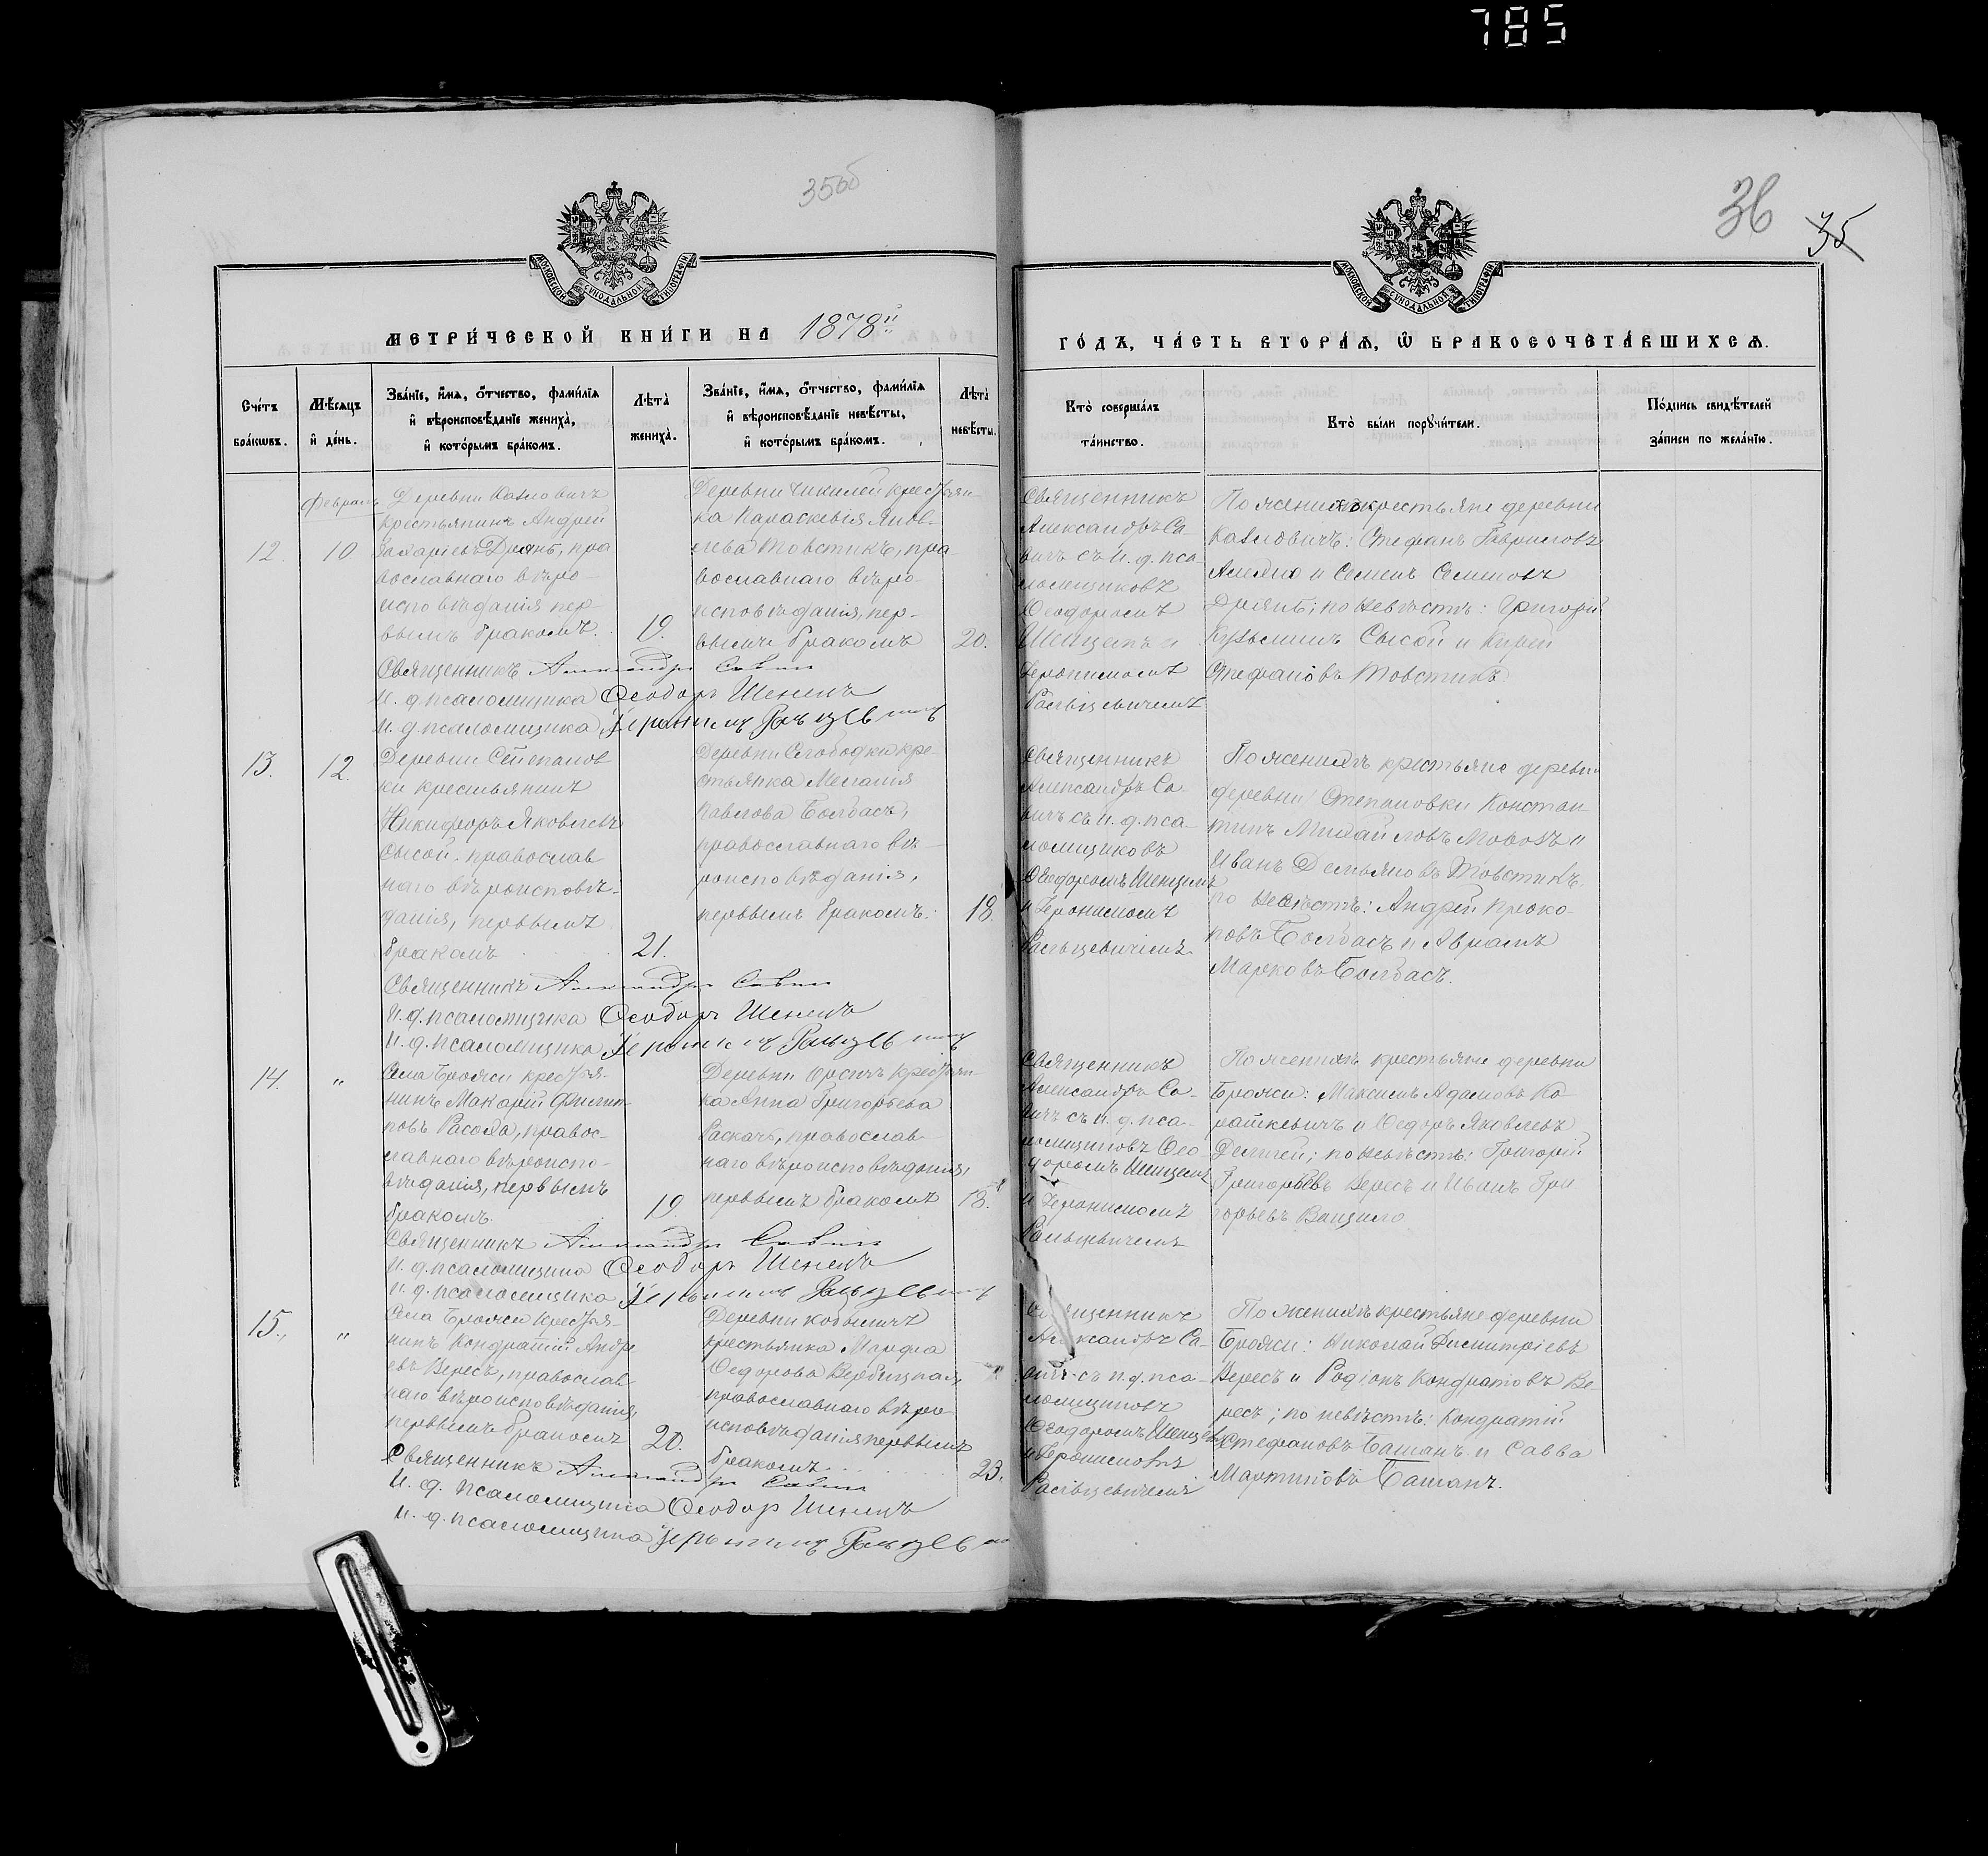 785
35об
36
35
МОСКОВСКОЙ СѴНОДАЛЬНОЙ ТИПОГРАФІИ
МОСКОВСКОЙ СѴНОДАЛЬНОЙ ТИПОГРАФІИ
МЕТРИ́ЧЕСКОЙ КНИ́ГИ НА 1878й
ГО́ДЪ, ЧА́СТЬ ВТОРА́Ѧ, Ѽ БРАКОСОЧЕТА́ВШИХСѦ.
Сче́тъ
бра́кѡвъ.
Мѣ́сѧцъ
и҆ де́нь.
Зва́нїе, и҆́мѧ, ѻ҆́тчество, фами́лїѧ
и҆ вѣроисповѣ́данїе жениха̀,
и҆ кото́рымъ бра́комъ.
Лѣта̀
жениха̀.
Зва́нїе, и҆́мѧ, ѻ҆́тчество, фами́лїѧ
и҆ вѣроисповѣ́данїе невѣ́сты,
и҆ кото́рымъ бра́комъ.
Лѣта̀
невѣ́сты.
Кто̀ соверша́лъ
та́инство.
Кто̀ бы́ли порꙋчи́тели.
По́дпись свидѣ́телей
за́писи по жела́нїю.
Февраль
12.
10
Деревни
крестьянинъ Андрей
Захаріевъ Дрянь, пра
вославнаго вѣро-
исповѣданія пер
вымъ бракомъ.
19.
Деревни Чикилей крестьян-
ка Параскевія Яков-
лева Товстикъ, пра-
вославнаго вѣро-
исповѣданія, пер-
вымъ бракомъ
20.
Священникъ
Александръ Са-
вичъ съ и. д. пса
ломщиковъ
Ѳеодоромъ
Шенцемъ и
Іеронимомъ
По женихѣ крестьяне деревни
Стефанъ Гавриловъ
и Семенъ Семеновъ
Дрянь; по невѣстѣ: Григорій
Кузьминъ Сысой и Кирей
Стефановъ Товстикъ.
Священникъ Александръ Савичъ
И. д. псаломщика Ѳеодоръ Шенецъ
И. д. псаломщика Іеронимъ
13.
12.
Деревни Степанов
ки крестьянинъ
Никифоръ Яковлевъ
Сысой, православ
наго вѣроисповѣ-
данія, первымъ
бракомъ
21.
Деревни Слободки кре-
стьянка Меланія
Павлова Болбасъ,
православнаго вѣ-
роисповѣданія,
первымъ бракомъ.
18.
Священникъ
Александръ Са-
вичъ съ и. д. пса-
ломщиковъ
Ѳеодоромъ Шенцемъ
и Іеронимомъ
По женихѣ крестьяне деревни
деревни Степановки Констан
тинъ Михайловъ и
Иванъ Демьяновъ Товстикъ,
по невѣстѣ: Андрей Проко-
повъ Болбасъ и Аврамъ
Марковъ Болбасъ.
Священникъ Александръ Савичъ
И. д. псаломщика Ѳеодоръ Шенецъ
И. д. псаломщика Іеронимъ
14.
"
Села Бряжи крестья-
нинъ Макарій Филип
повъ Расоха, правос-
лавнаго вѣроиспо-
вѣданія, первымъ
бракомъ.
19.
Деревни крестьян-
ка Анна Григорьева
Раскачъ, православ-
наго вѣроисповѣданія,
первымъ бракомъ
18.
Священникъ
Александръ Са-
вичъ съ и. д. пса-
ломщиковъ Ѳео
доромъ Шенцемъ
и Іеронимомъ
По женихѣ крестьяне деревни
Бряжи: Максимъ Адамовъ Ко
раткевичъ и Ѳедоръ Яковлевъ
по невѣстѣ: Григорій
Григорьевъ Вересъ и Иванъ Гри
горьевъ
Священникъ Александръ Савичъ
И. д. псаломщика Ѳеодоръ Шенецъ
И. д. псаломщика Іеронимъ
15.
"
Села Бряжи крестья-
нинъ Кондратій Андре
евъ Вересъ, православ
наго вѣроисповѣданія,
первымъ бракомъ
20.
Деревни
крестьянка Марфа
Ѳедорова Вербицкая,
православнаго вѣро
исповѣданія первымъ
бракомъ
23.
Священникъ
Александръ Са-
вичъ съ и. д. пса-
ломщиковъ
Ѳеодоромъ Шенцемъ
и Іеронимомъ
По женихѣ крестьяне деревни
Бряжи: Николай Димитріевъ
Вересъ и Родіонъ Кондратовъ Ве-
ресъ; по невѣстѣ: Кондратій
Стефановъ Башанъ и Савва
Мартиновъ Башанъ.
Священникъ Александръ Савичъ
И. д. псаломщика Ѳеодоръ Шенецъ
И. д. псаломщика Іеронимъ